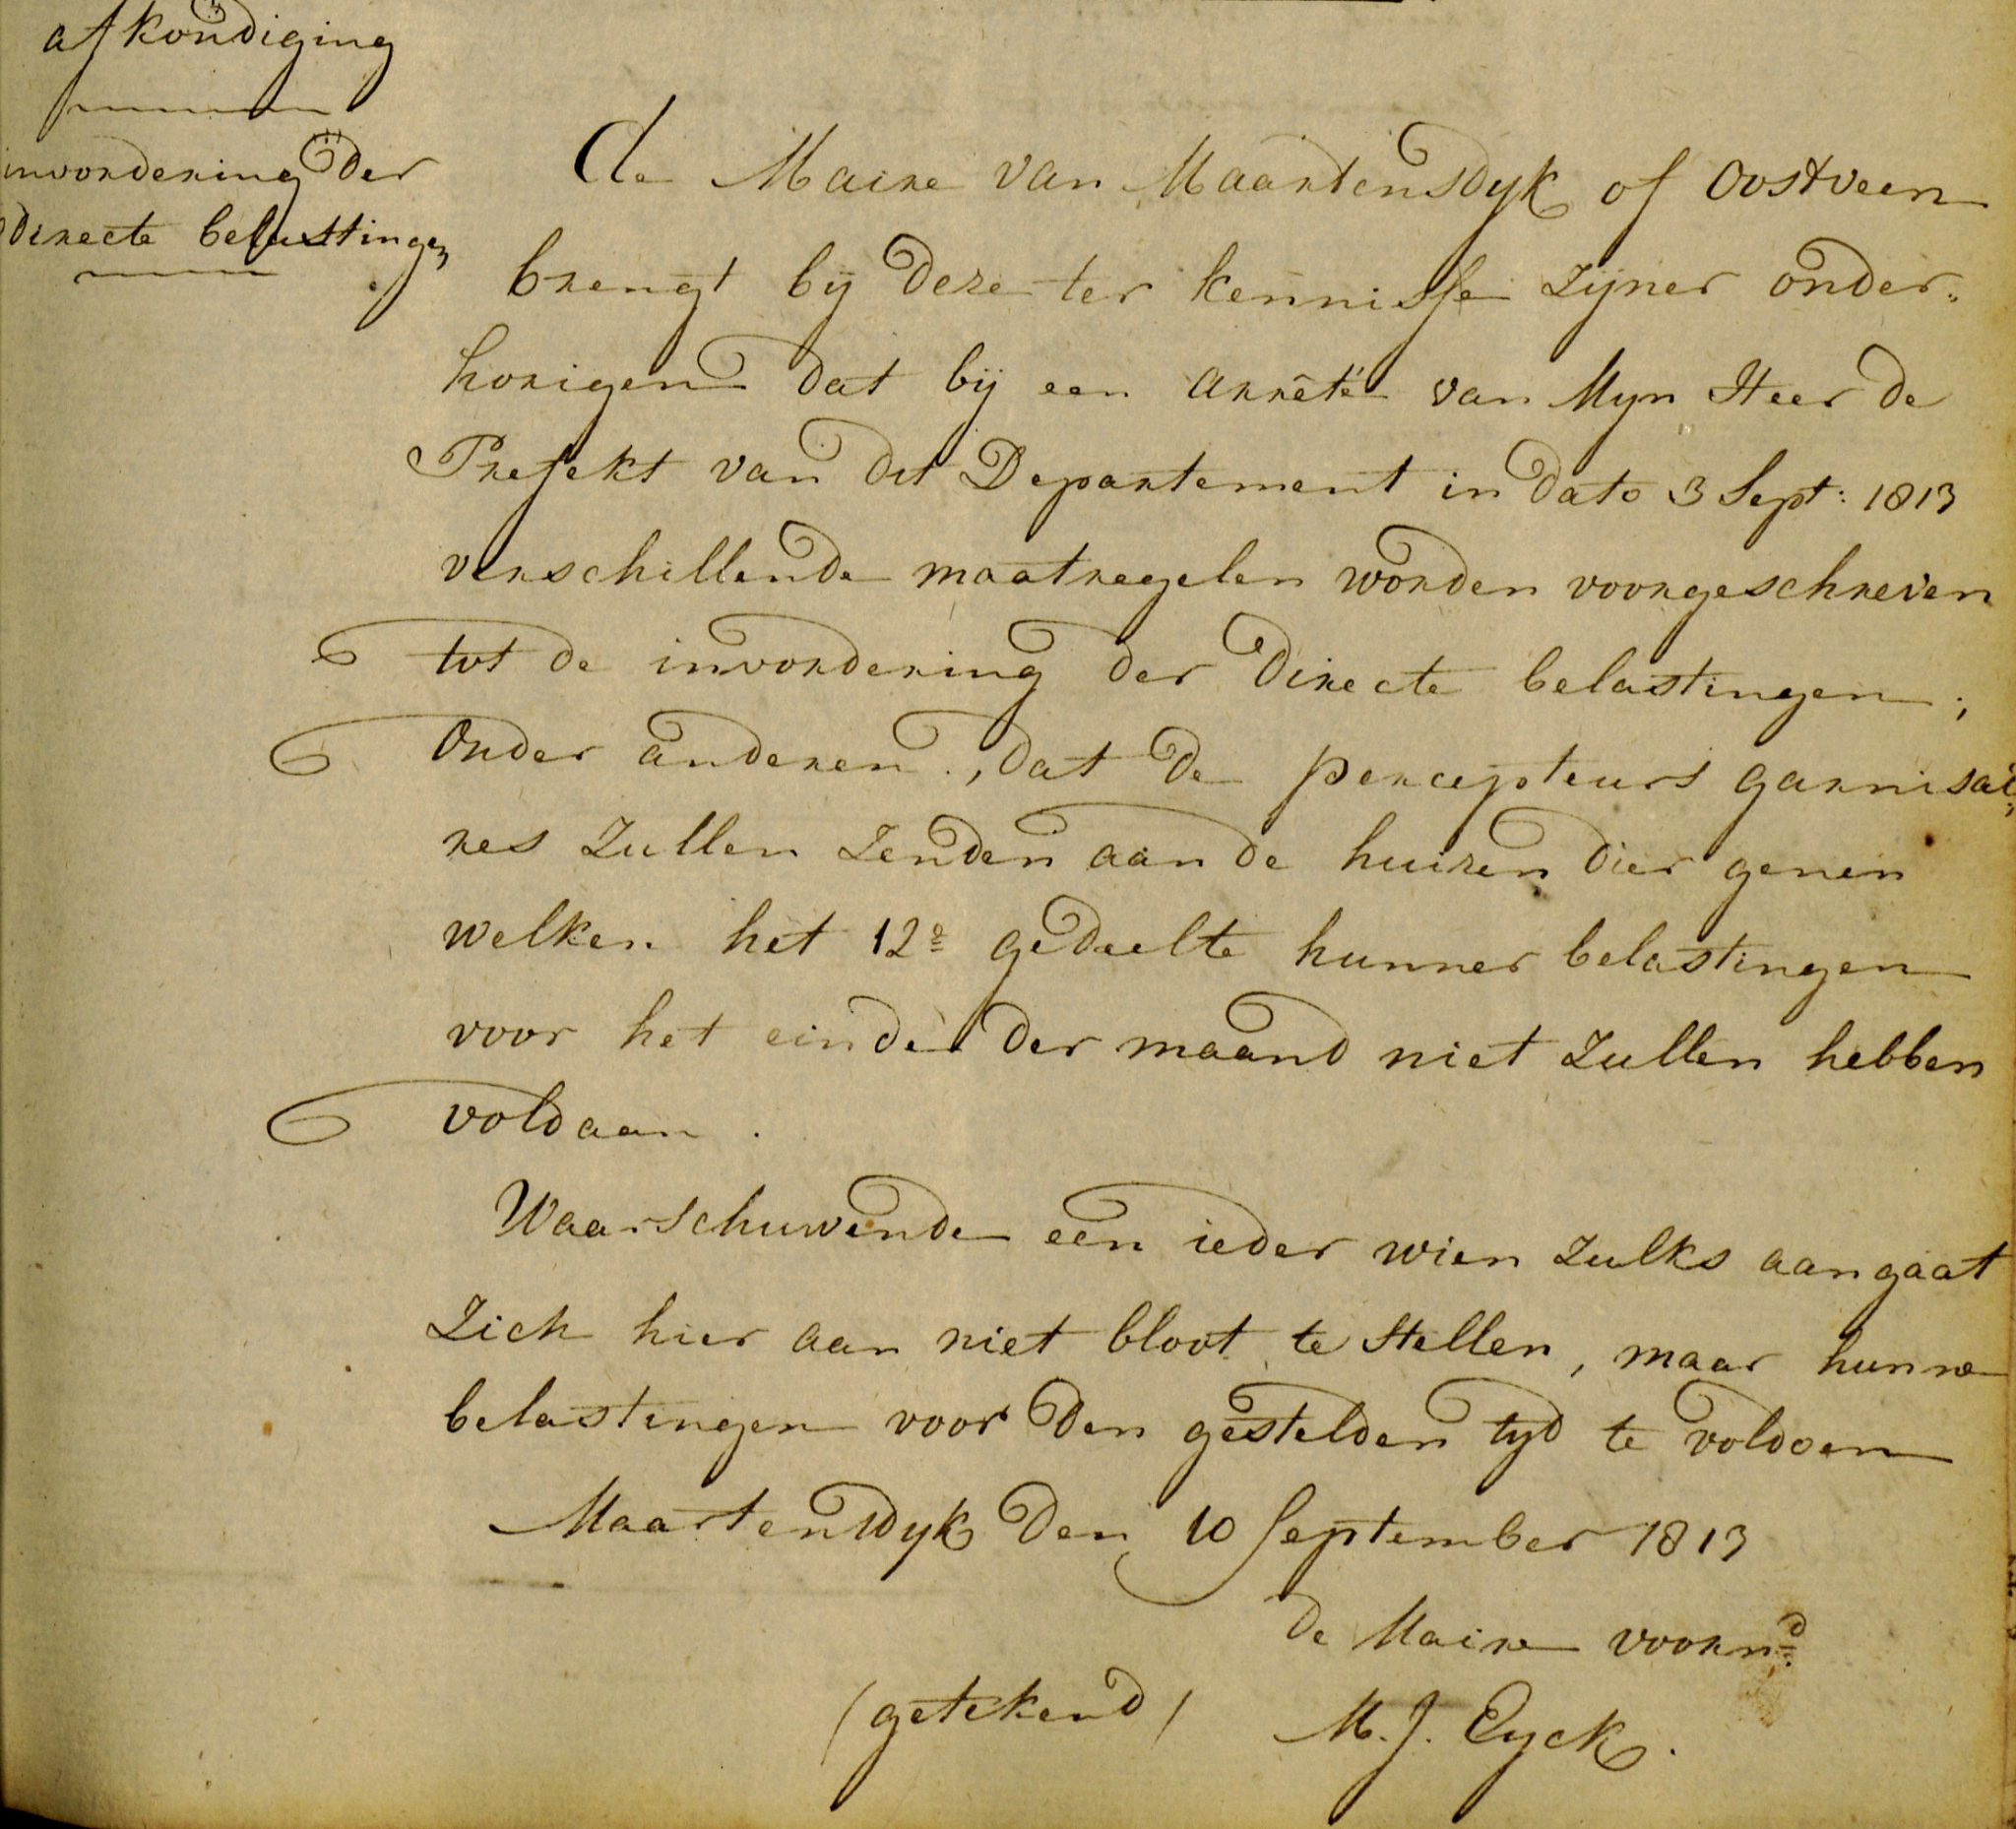 afkondiging
invordering der
directe belastingen
de Maire van Maartensdyk of Oostveen
brengt bij deze ter kennisse zijner onder„
horigen dat bij een arrêté van Myn Heer de
Prefekt van dit Departement in dato 3 Sept: 1813
verschillende maatregelen worden voorgeschreven
tot de invordering der directe belastingen;
onder anderen, dat de percepteurs garnisai„
res zullen zenden aan de huizen dier genen
welken het 12e gedeelte hunner belastingen
voor het einde der maand niet zullen hebben
voldaan.
Waarschuwende een ieder wien zulks aangaat
zich hier aan niet bloot te stellen, maar hunne
belastingen voor den gestelden tyd te voldoen
Maartensdyk den 10 September 1813
de Maire voornd.
(getekend) M. J. Eyck.